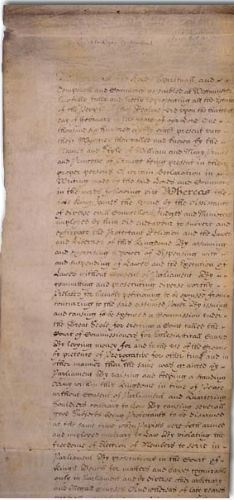 Lords Spirituall and
Commons assembled at Westminster
lawfully fully and freely representing all the Estates
of the People upon the thirteenth
day of February in the yeare of our Lord One
thousand six hundred eighty eight present unto
their Majesties then called and known by the
Names and Stile of William and Mary Prince
and Princesse of Orange being present in their
proper Persons a certain Declaration in
Writing made by the said Lords and Commons
in the words following viz Whereas the
late King James the Second by the Assistance
of diverse evill Councellors Judges and Ministers
imployed by him did endeavour to subvert and
extirpate the Protestant Religion and the Lawes
and Liberties of this Kingdome By assuming
and exercising a Power of Dispensing with
and suspending of Lawes and the Execution of
Lawes without Consent of Parliament By
committing and prosecuting diverse worthy
Prelates for humbly petitioning to be excused from
concurring to the said assumed Power By issuing
and causing to be executed a Commission under
the Great Seale for erecting a Court called the
Court of Commissioners for Ecclesiasticall Causes
By levying money for and to the use of the Crowne
by pretence of Prerogative for other time and in
other manner than the same was granted by
Parliament By raising and keeping a standing
Army within this Kingdome in time of Peace
without consent of Parliament and Quartering
Souldiers contrary to Law By causing severall
good Subjects being Protestants to be disarmed
at the same time when Papists were both armed
and imployed contrary to Law By violating the
freedome of Election of Members to serve in
Parliament By prosecutions in the Court of
Kings Bench for matters and causes cognizable
only in Parliament and by diverse other arbitrary
and illegall courses And whereas of late yeares